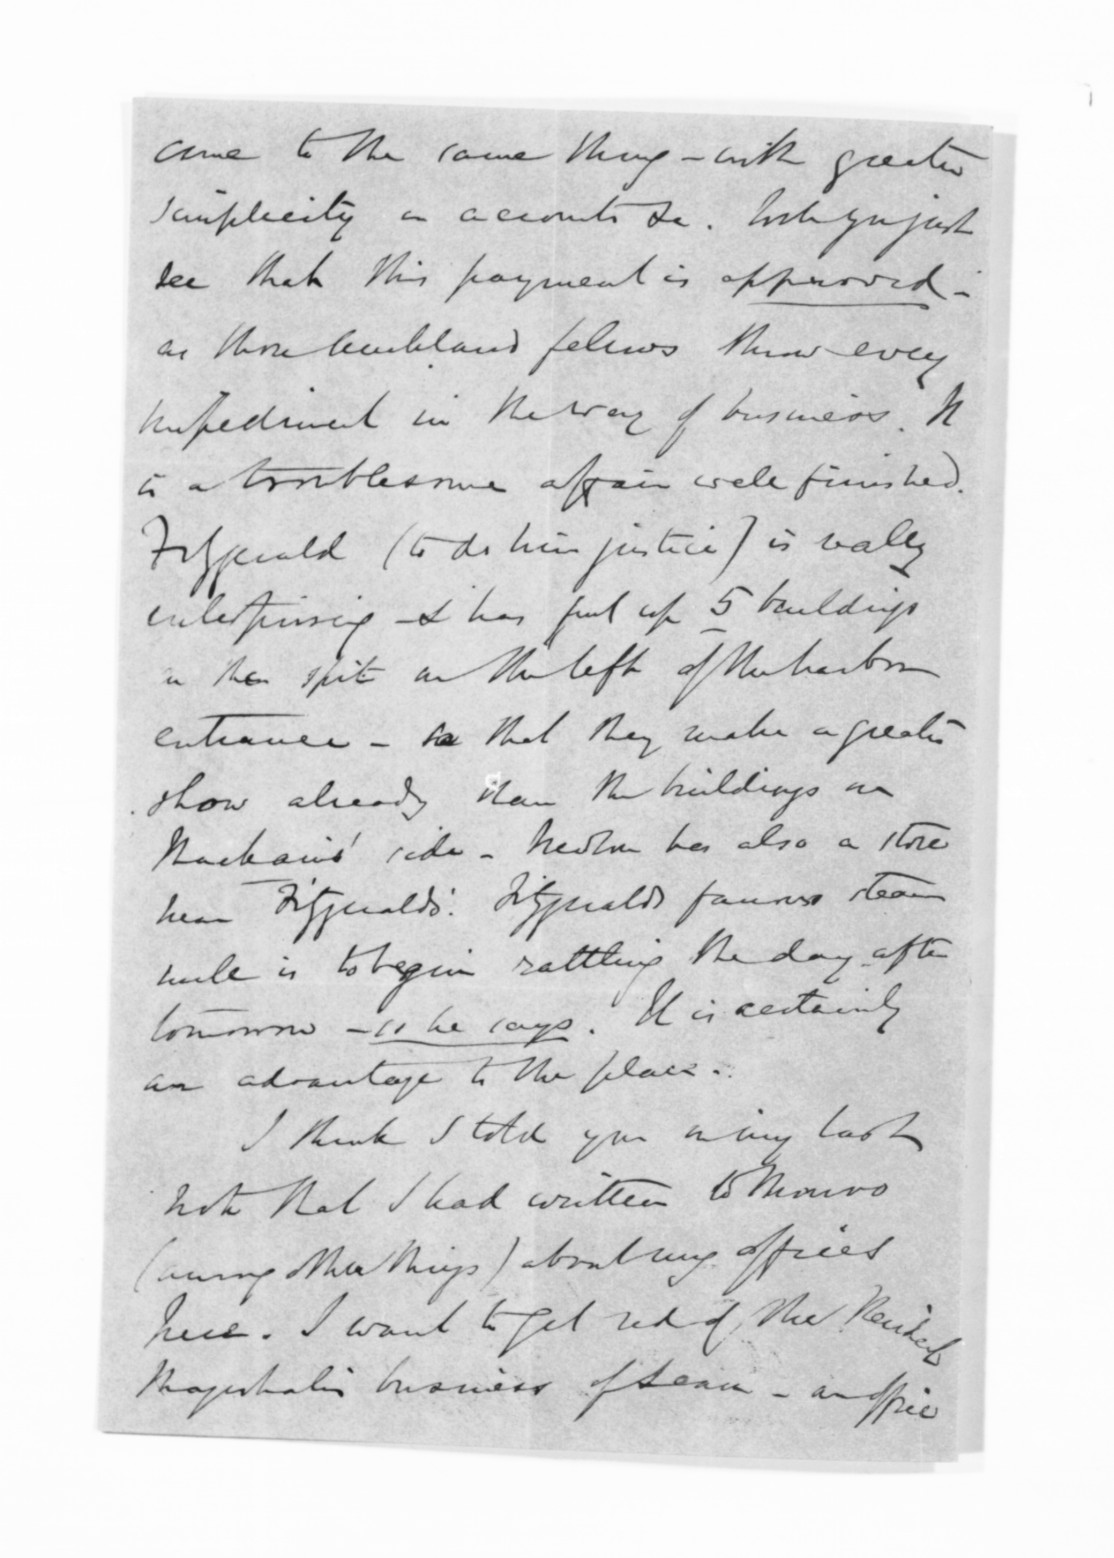 come to the same thing - with greater
simplicity in accounts &c. Will you just
see that this payment is approved -
as those Auckland fellows throw every
impediment in the way of business. It
is a troublesome affair well finished.
Fitzgerald (to do him justice) is really
enterprising - & has put up 5 buildings
on the spit on the left of the harbor
entrance - so that they make a greater
show already than the buildings on
side - has also a store
near Fitzgerald's. Fitzgerald's famous steam
mill is to begin rattling the day after
tomorrow - so he says. It is certainly
an advantage to the place.
I think I told you in my last
note that I had written to Monro
(among other things) about my offices
here. I want to get rid of the Resident
Magistrate's business of - an office